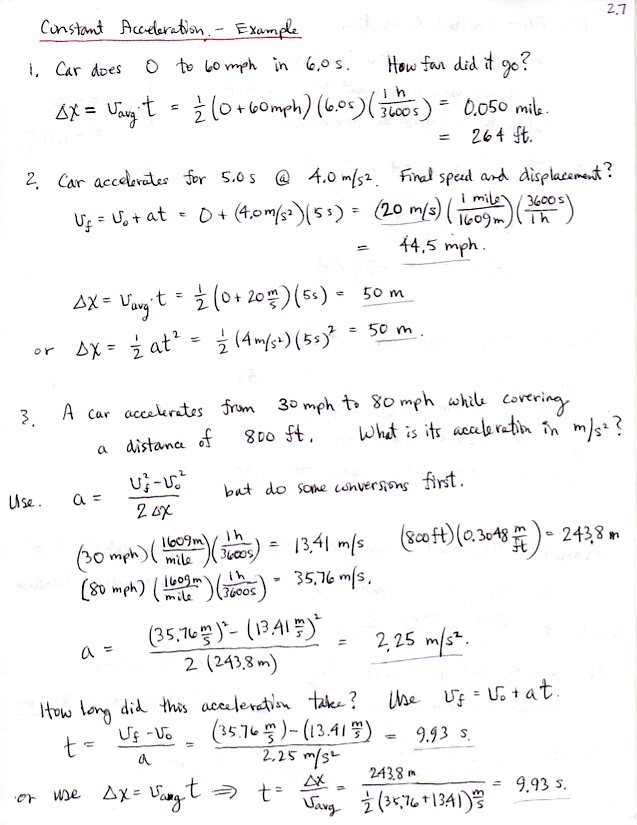 2.7
Constant Acceleration. – Example
1. Car does 0 to 60 mph in 6.0 s. How far did it go?
Δx = v_avg·t = 1/2 (0 + 60 mph)(6.0 s)(1 h / 3600 s) = 0.050 mile.
= 264 ft.
2. Car accelerates for 5.0 s @ 4.0 m/s². Final speed and displacement?
v_f = v_0 + at = 0 + (4.0 m/s²)(5 s) = (20 m/s)(1 mile / 1609 m)(3600 s / 1 h)
= 44.5 mph.
Δx = v_avg·t = 1/2 (0 + 20 m/s)(5s) = 50 m
or Δx = 1/2 at² = 1/2 (4 m/s²)(5s)² = 50 m.
3. A car accelerates from 30 mph to 80 mph while covering
a distance of 800 ft. What is its acceleration in m/s²?
Use. a = (v_f² - v_0²) / 2Δx but do some conversions first.
(30 mph)(1609 m / mile)(1 h / 3600 s) = 13.41 m/s (800 ft)(0.3048 m/ft) = 243.8 m
(80 mph)(1609 m / mile)(1 h / 3600 s) = 35.76 m/s.
a = ((35.76 m/s)² - (13.41 m/s)²) / 2 (243.8 m) = 2.25 m/s².
How long did this acceleration take? Use v_f = v_0 + at.
t = (v_f - v_0) / a = ((35.76 m/s) - (13.41 m/s)) / 2.25 m/s² = 9.93 s.
or use Δx = v_avg t ⇒ t = Δx / v_avg = 243.8 m / 1/2 (35.76 + 13.41) m/s = 9.93 s.